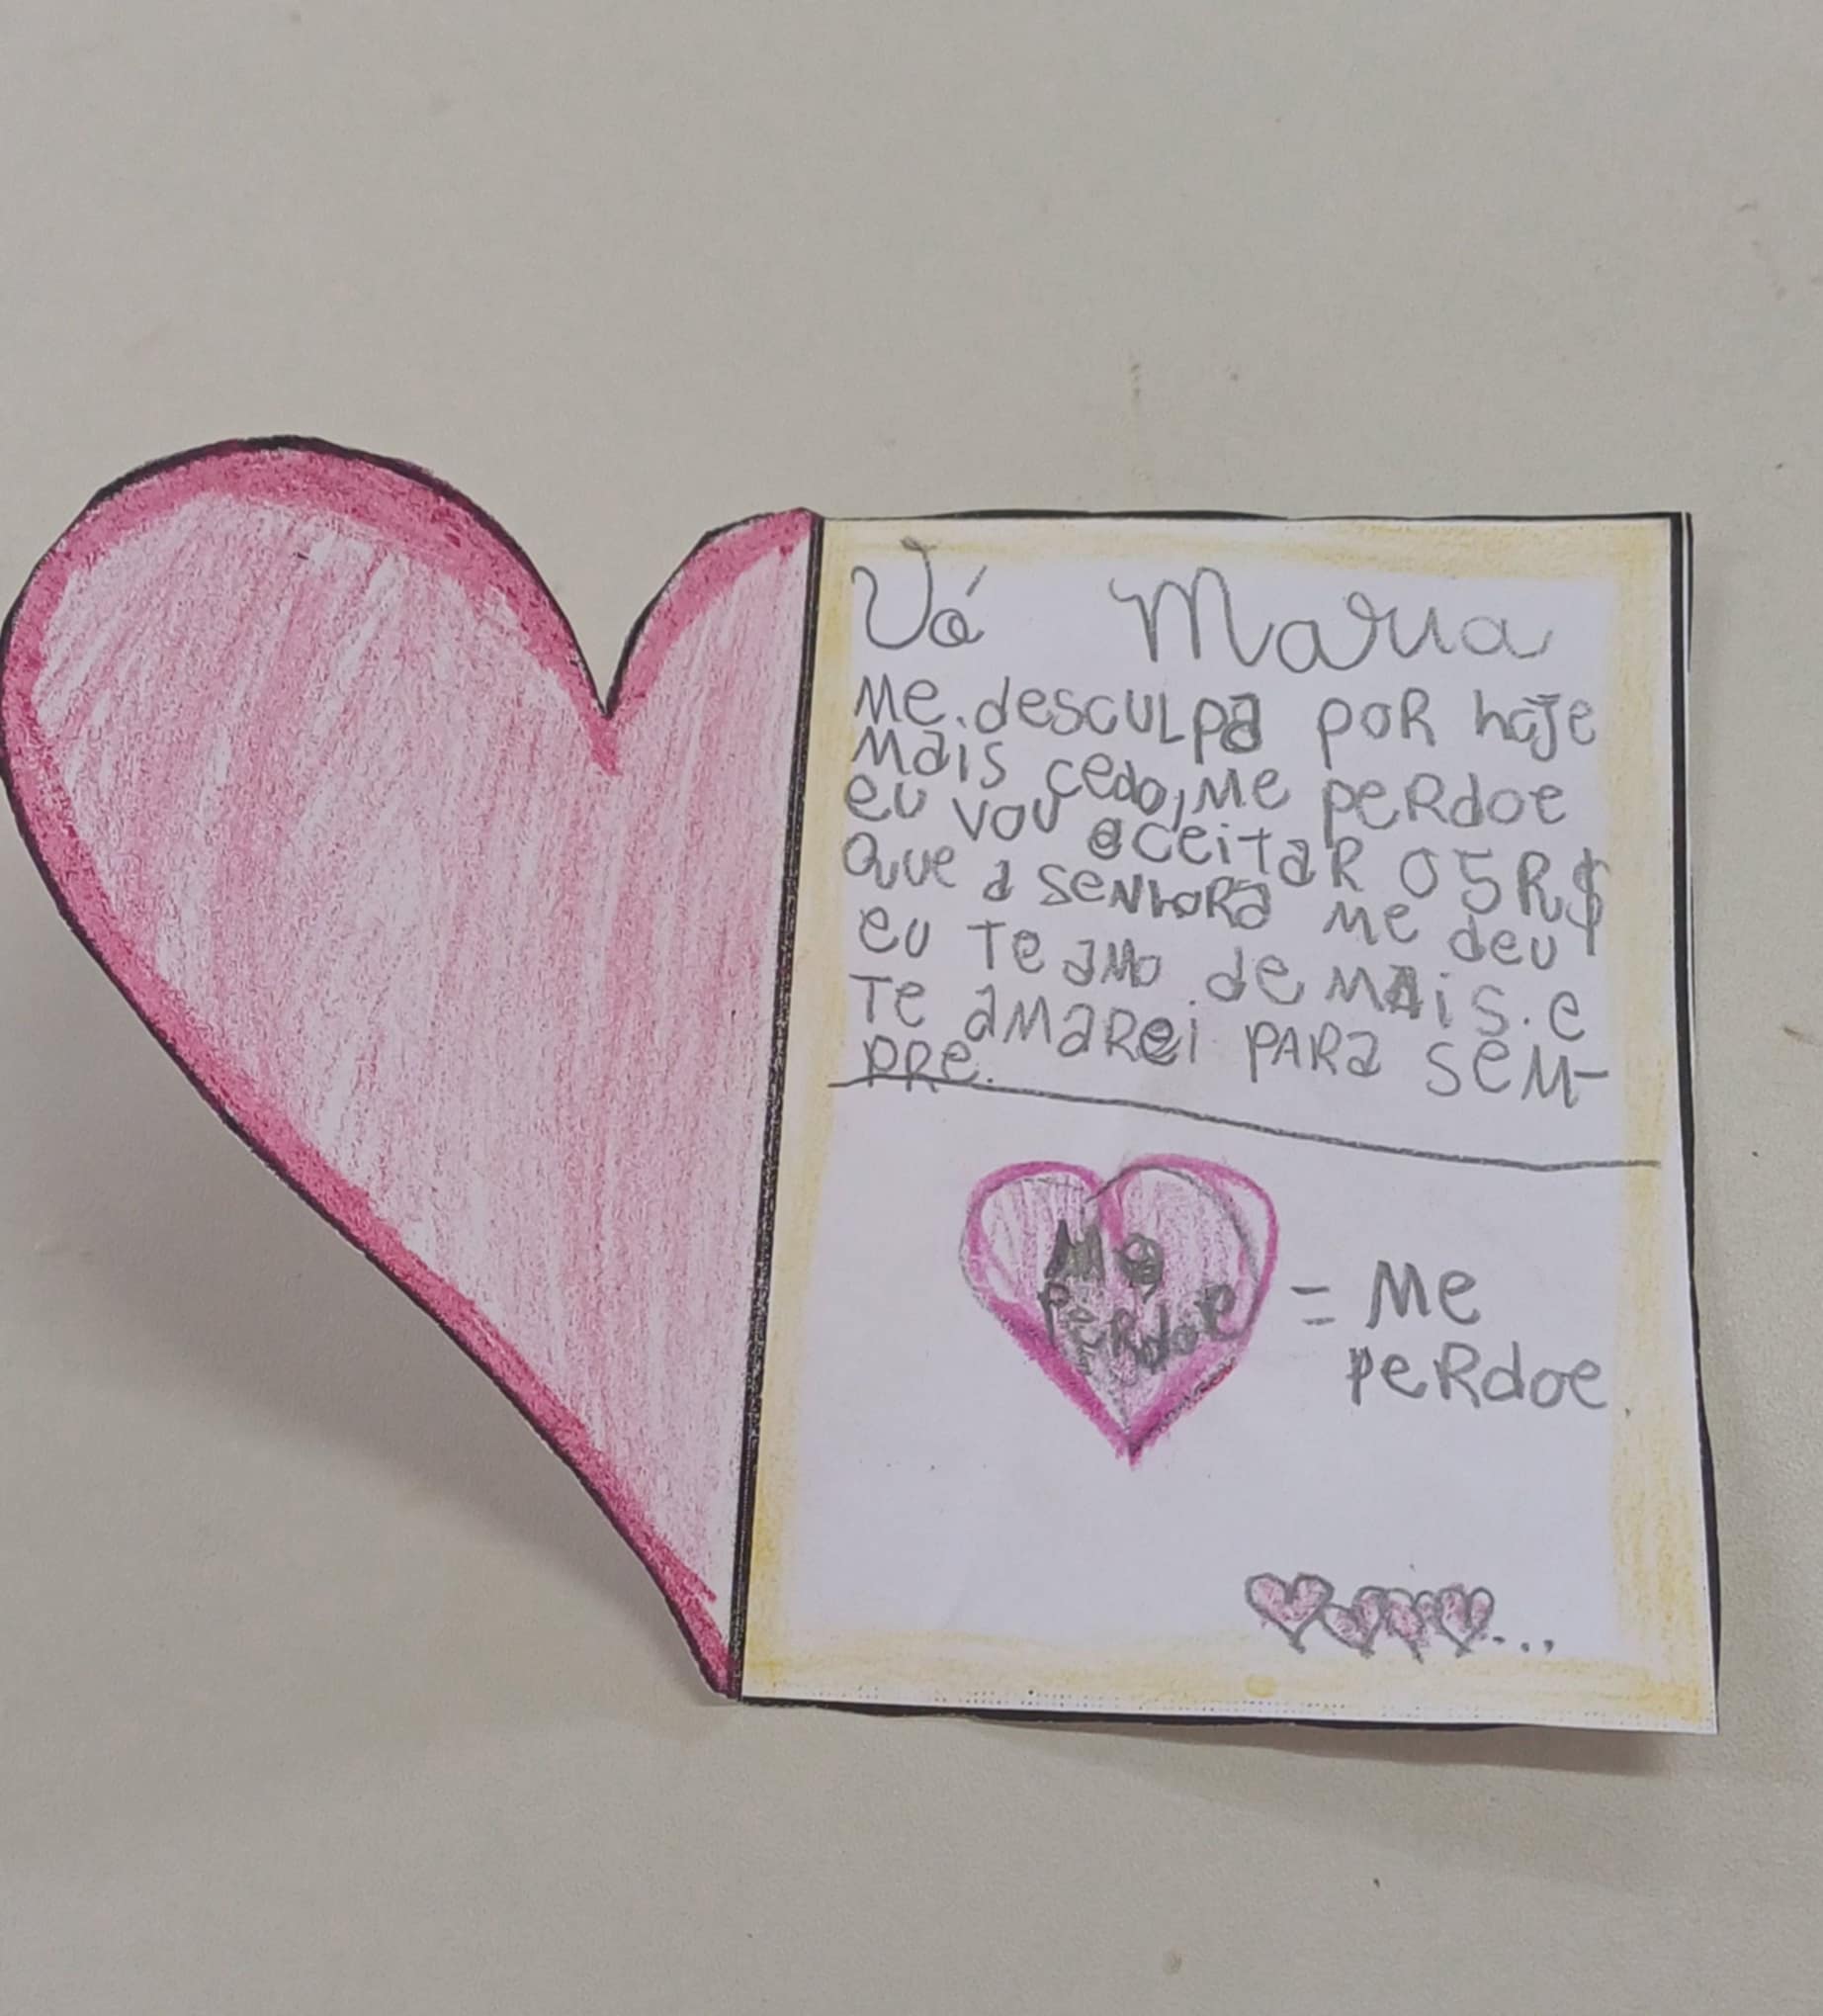 Vó Maria
Me desculpa por hoje
mais cedo, me perdoe
eu vou aceitar o 5R$
que a senhora me deu
eu te amo de mais. e
te amarei para sem-
pre.
Me
perdoe
= Me
perdoe
...